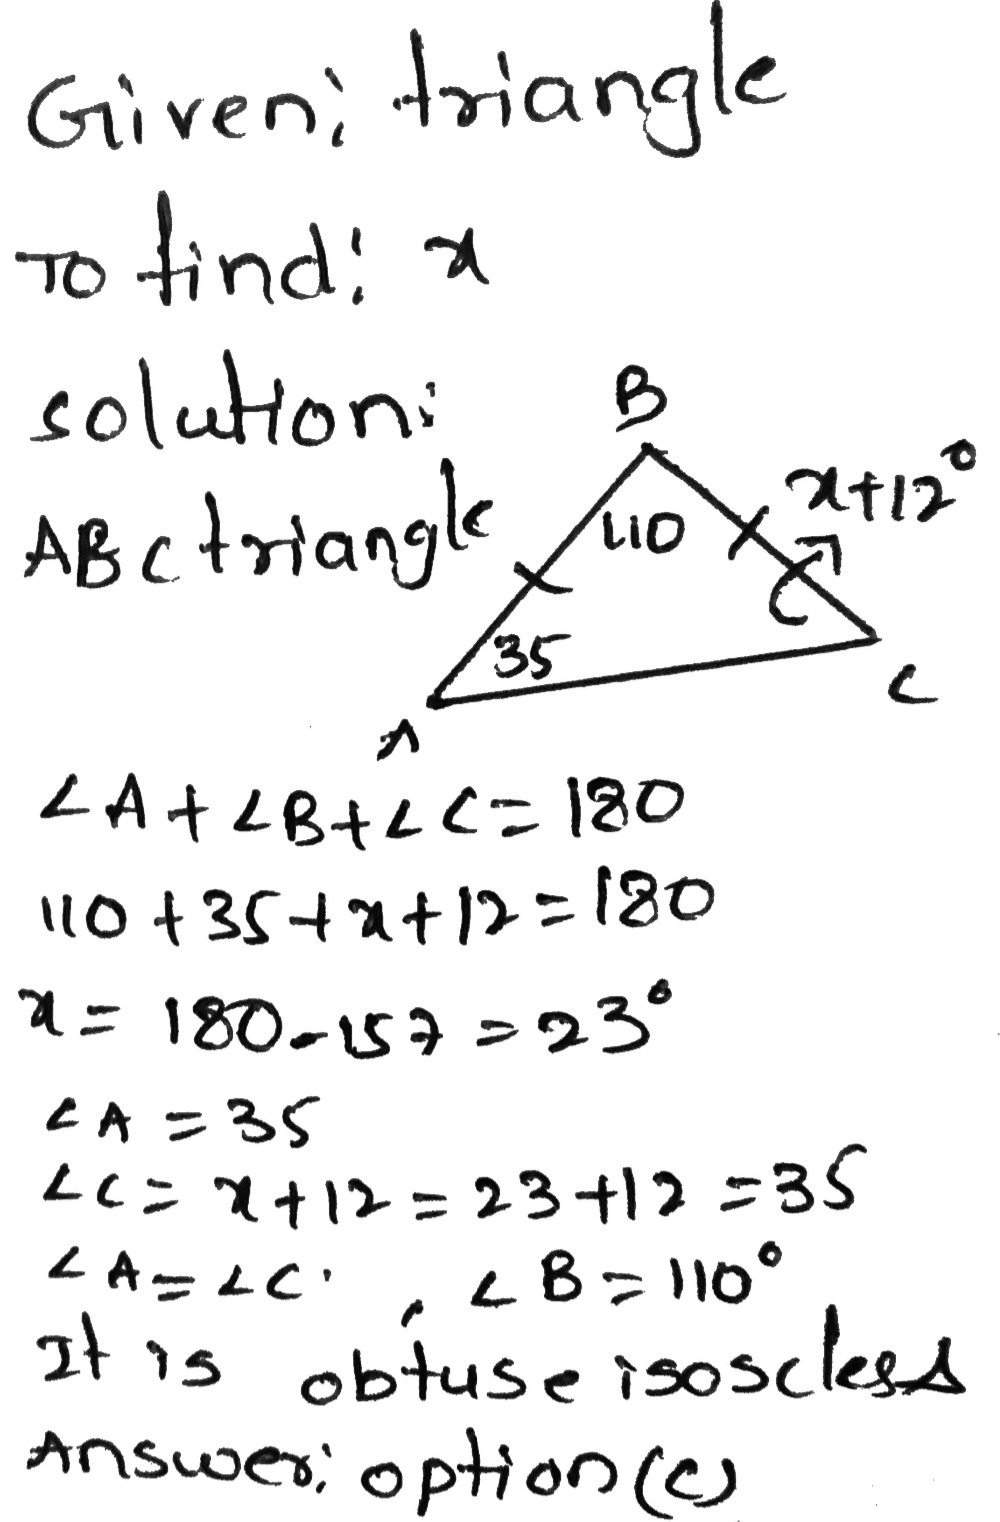 Given: triangle
To find: x
solution:
ABC triangle
B
x+12°
110
35
A
C
∠A+∠B+∠C=180
110+35+x+12=180
x=180-157=23°
∠A=35
∠C=x+12=23+12=35
∠A=∠C. , ∠B=110°
It is obtuse isoscless
Answer: option(c)